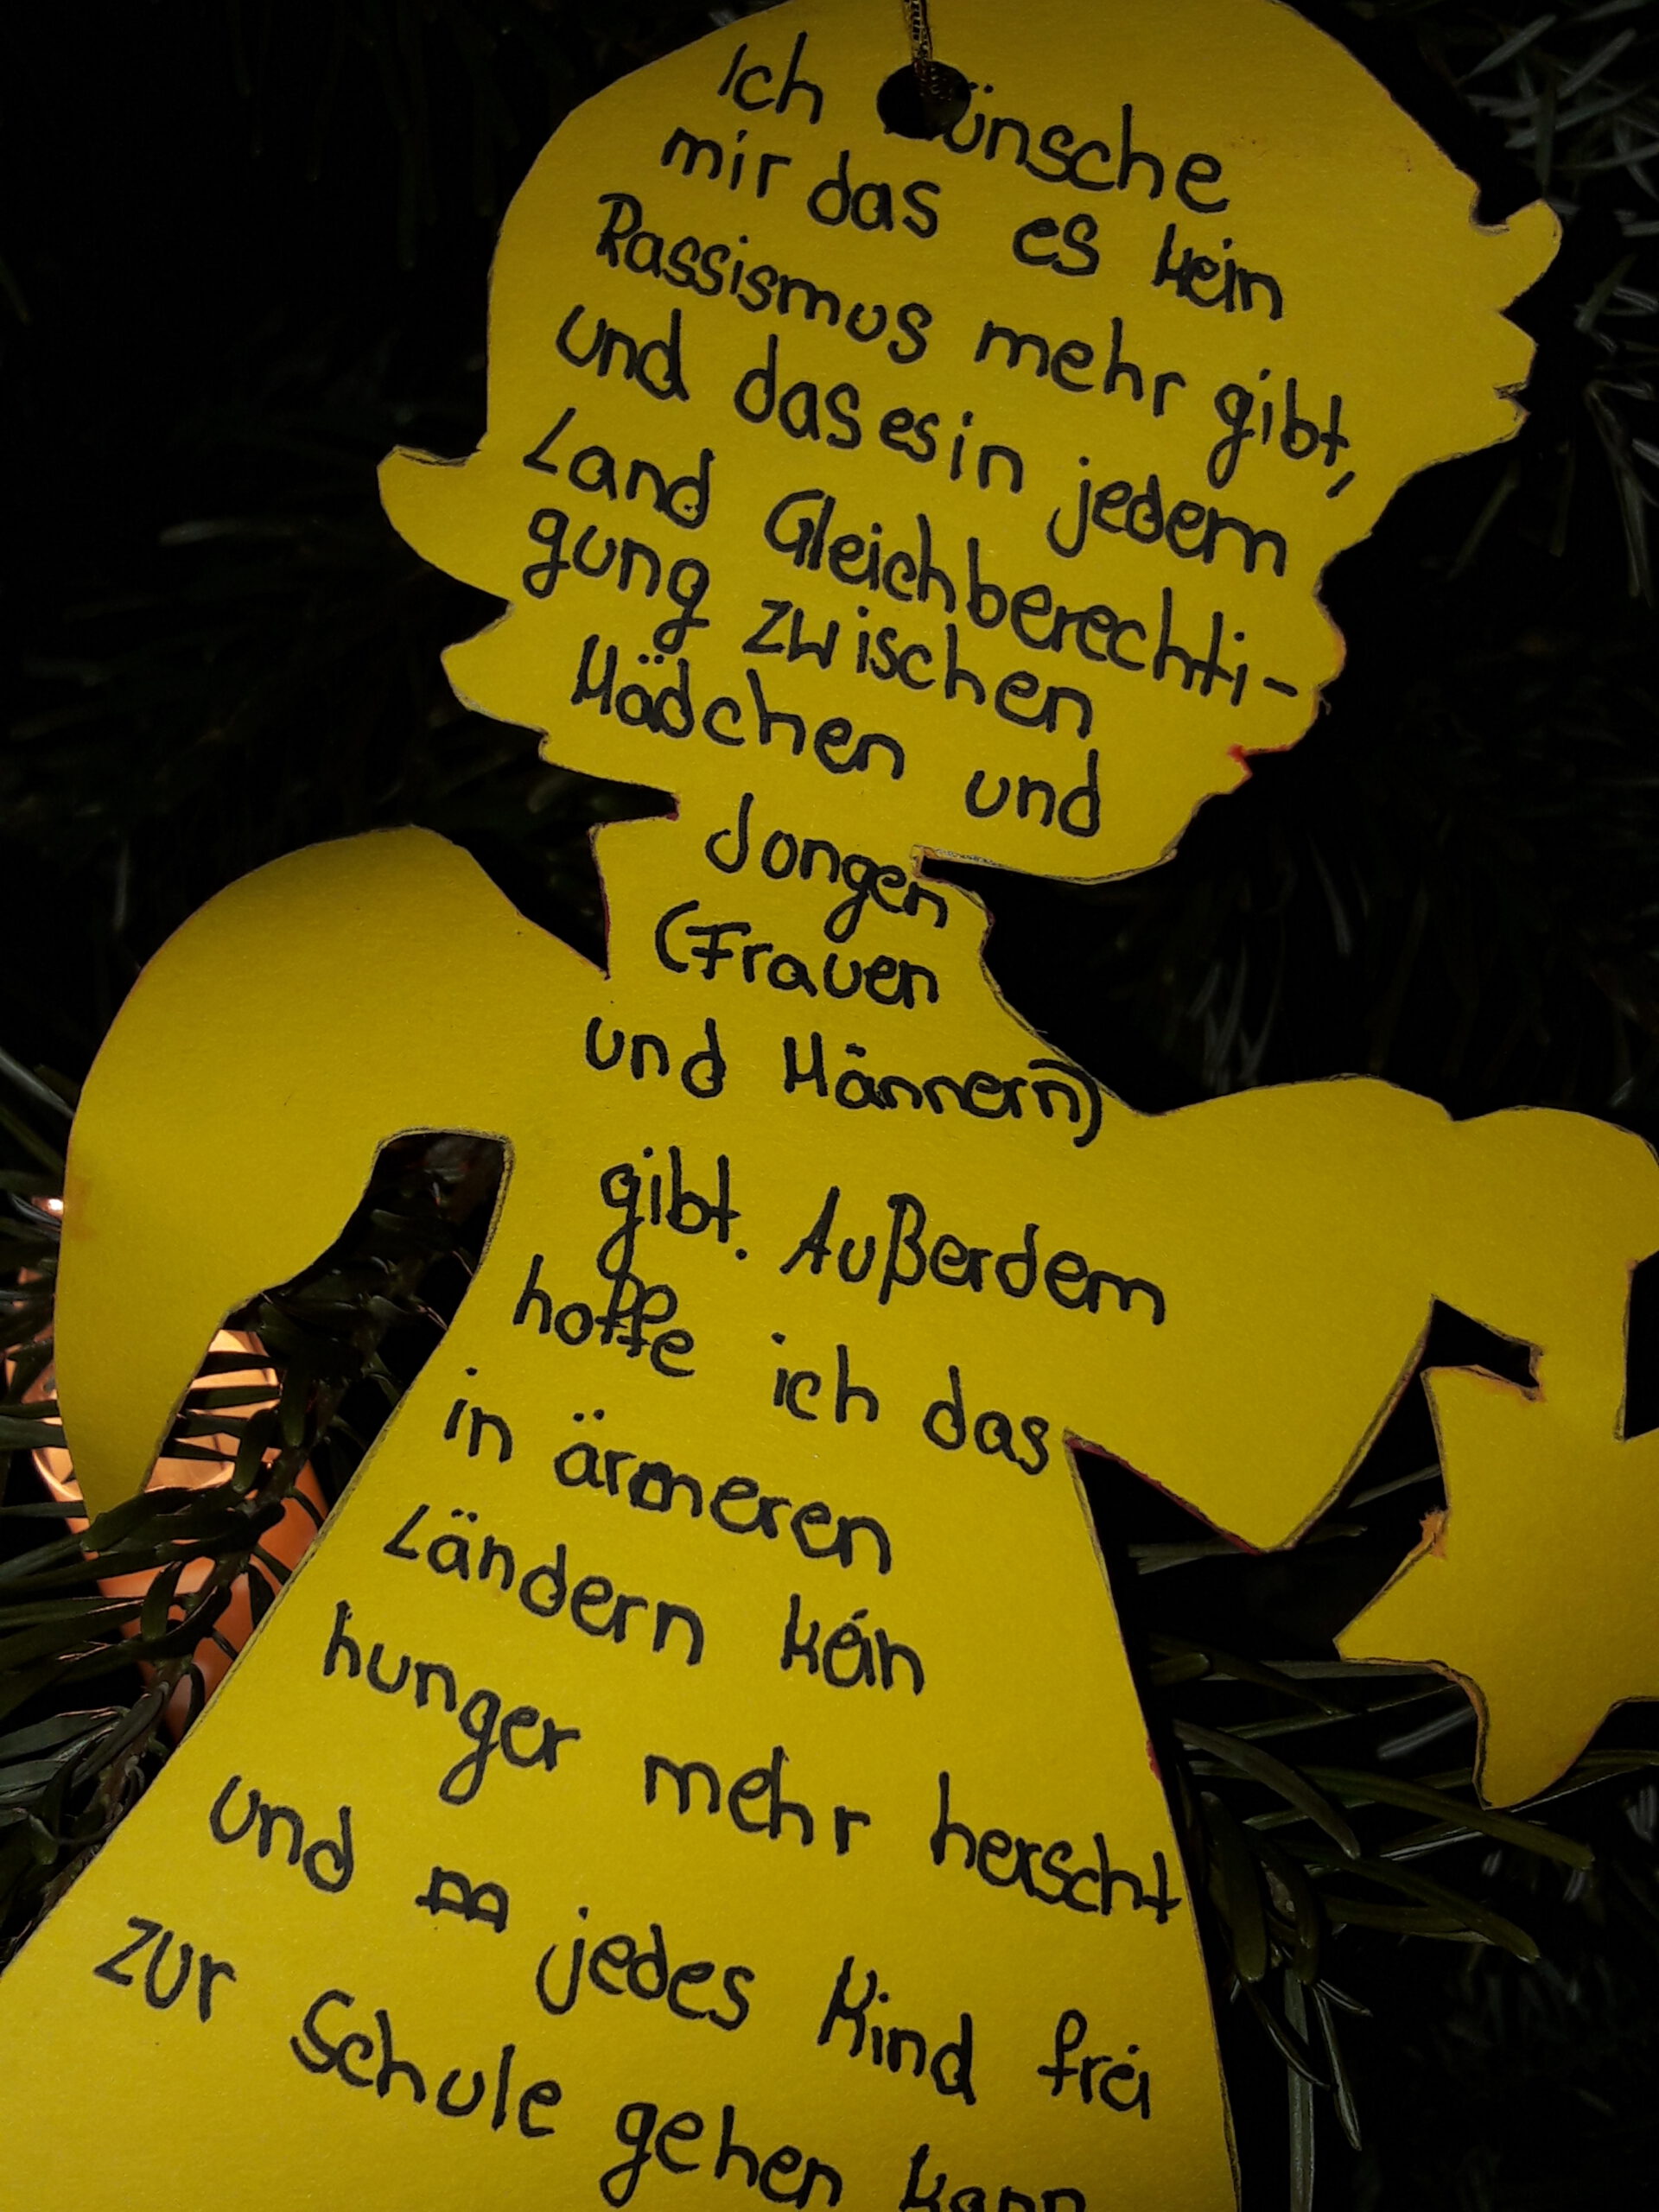 Ich wünsche
mir das es kein
Rassismus mehr gibt,
und das es in jedem
Land Gleichberechti-
gung zwischen
Mädchen und
Jongen
(Frauen
und Männern)
gibt. Außerdem
hoffe ich das
in ärmeren
Ländern kein
hunger mehr herscht
und jedes Kind frei
zur Schule gehen kann